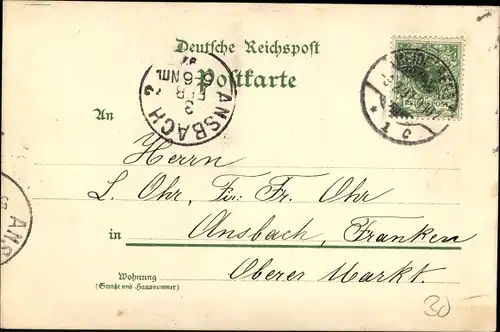 Deutsche Reichspost
Postkarte
ANSBACH 2
3 FEB
5-6 NM.
97
An
Herrn
L. Ohr, Fir: Fr. Ohr
in Ansbach, Franken
Oberer Markt.
Wohnung
(Straße und Hausnummer)
ANS
30